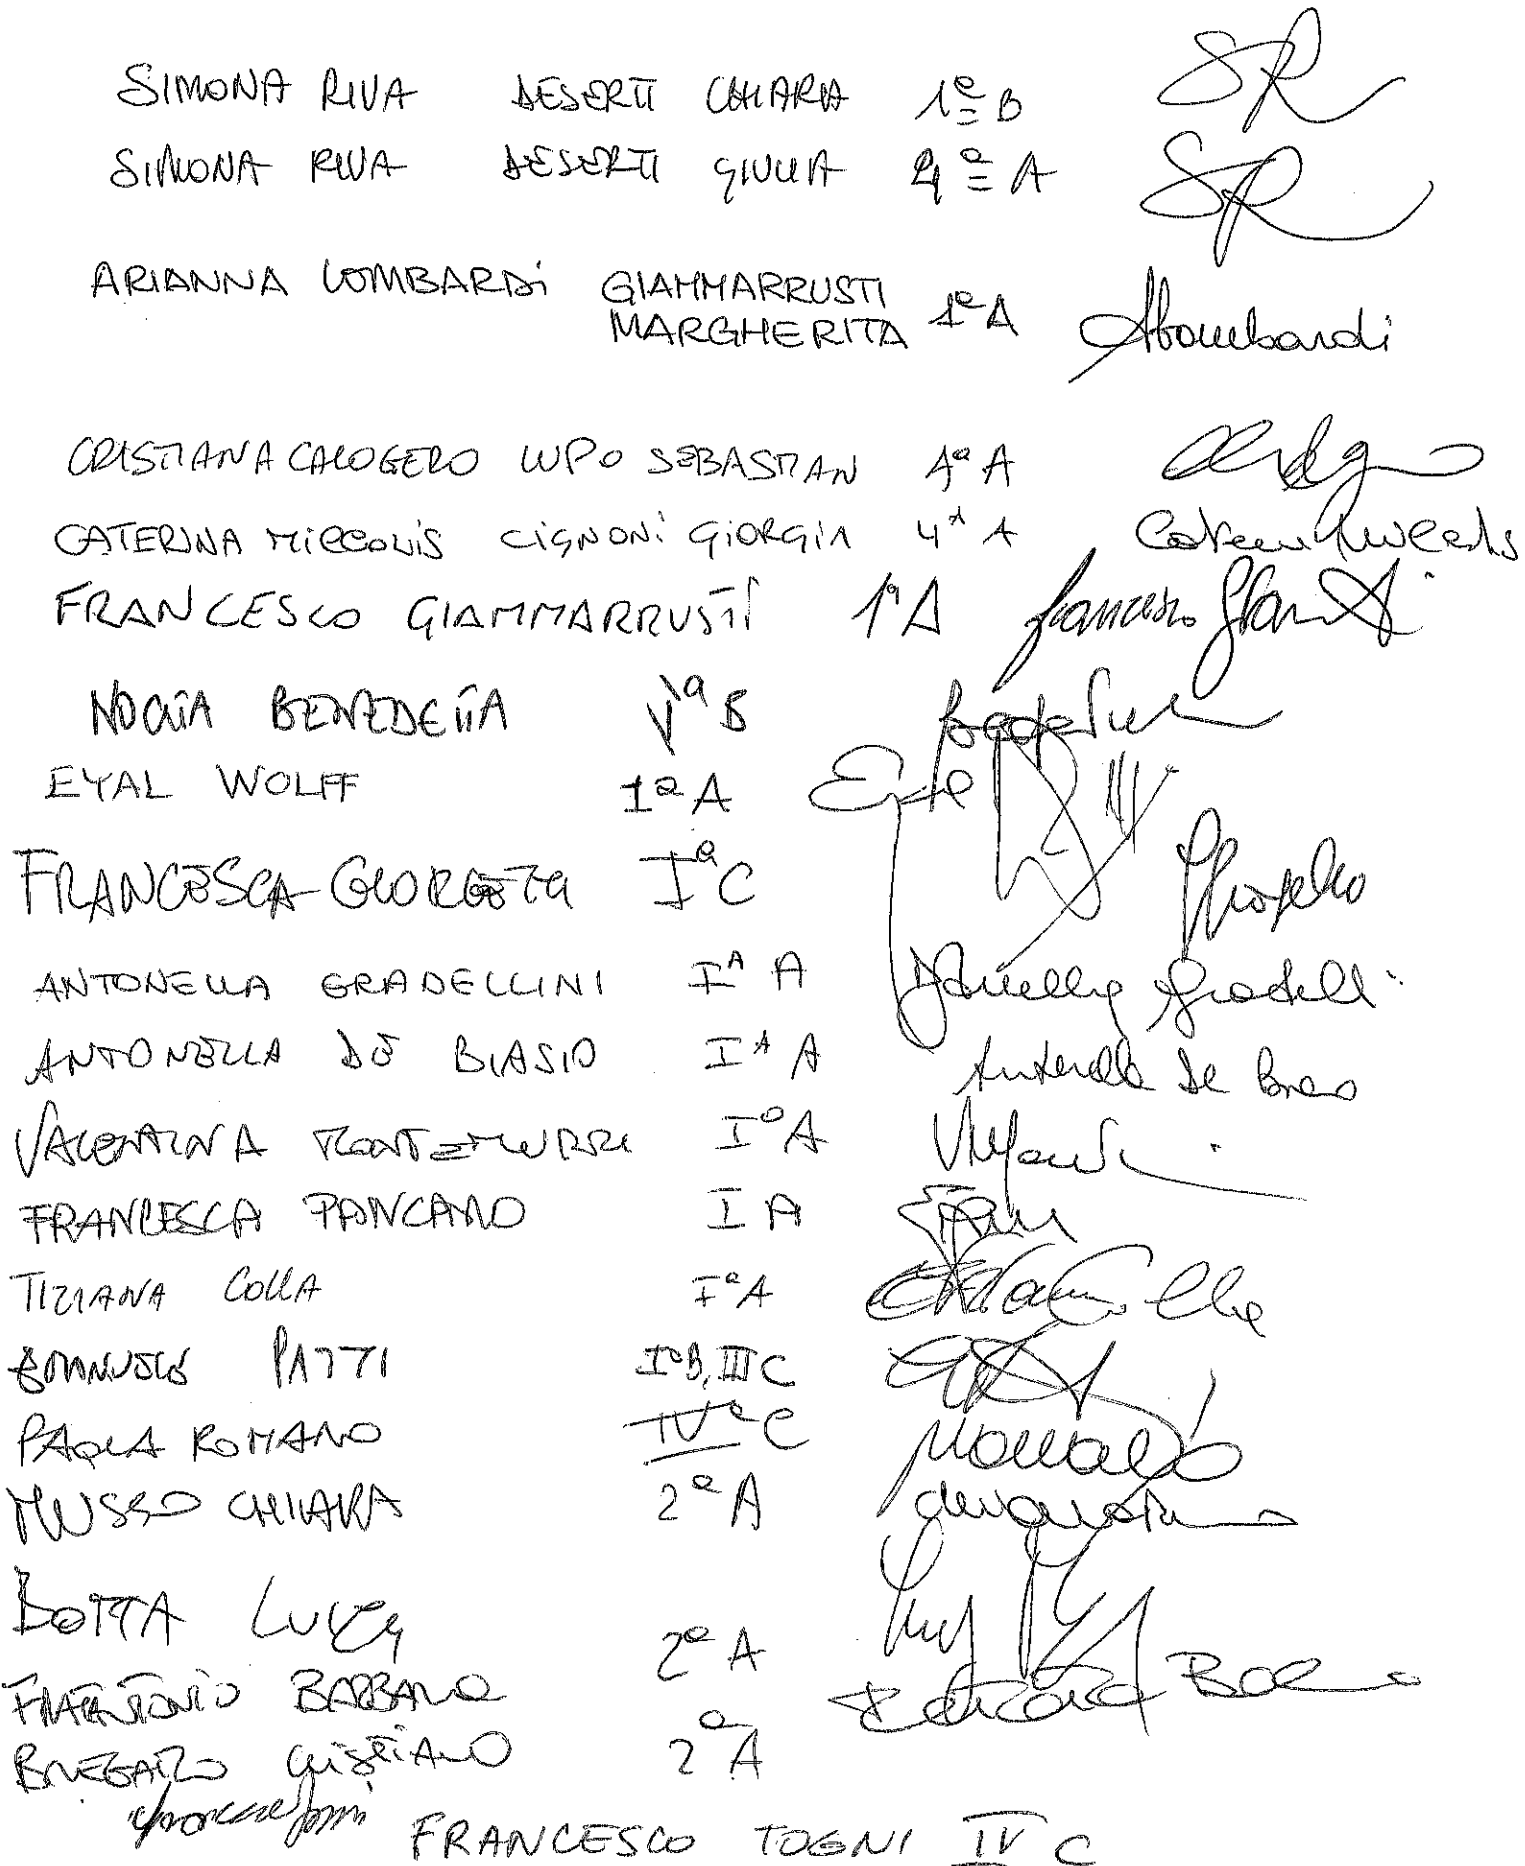 SIMONA RIVA DESERTI CHIARA 1ª B SR
SIMONA RIVA DESERTI GIULIA 4ª A SR
ARIANNA LOMBARDi GIAMMARRUSTI MARGHERITA 1ª A ALombardi
CRISTIANA CALOGERO LUPO SEBASTIAN 4ª A
CATERINA MICCOLIS CIGNONI GIORGIA 4ª A
FRANCESCO GIAMMARRUSTI 1ª A Francesco
BENEDETTA B
EYAL WOLFF 1ª A Eyal
FRANCESCA Iª C
ANTONELLA GRADELLINI Iª A Antonella Gradellini
ANTONELLA DE BIASIO Iª A Antonella De Biasio
VALENTINA MONTEMURRI Iª A
FRANCESCA PANCANO I A
TIZIANA COLLA Iª A Tiziana Colla
EMANUELE PATTI Iª B, III C
PAOLA ROMANO IVª C PRomano
MUSSO CHIARA 2ª A
BOTTA LUCA 2ª A
BARBARA
CRISTIANO 2ª A
FRANCESCO TOGNI IV C